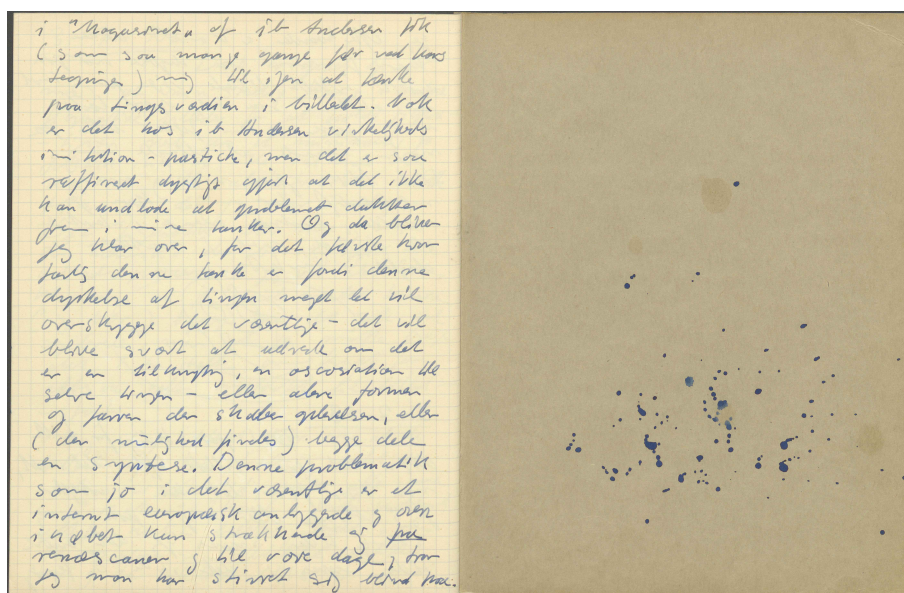 i "Magasinet" af ib Andersen fik
(som saa mange gange før ved hans
tegninger) mig til igen at tænke
paa tingsværdien i billedet. Nok
er det hos ib Andersen virkeligheds
imitation - pastiche, men det er saa
raffineret dygtigt gjort at det ikke
kan undlade at problemet dukker
frem i mine tanker. Og da bliver
jeg klar over, for det første hvor
farlig denne tanke er fordi denne
dyrkelse af tingen meget let vil
overskygge det væsentlige - det vil
blive svært at udrede om det
er en tilknytning, en association til
selve tingen - eller alene formen
og farven der skaber oplevelsen, eller
(den mulighed findes) begge dele
en syntese. Denne problematik
som jo i det væsentlige er et
internt europæisk anliggende og oven
i købet kun strækkende sig fra
renæscancen og til vore dage, tror
jeg man har stirret sig blind paa.